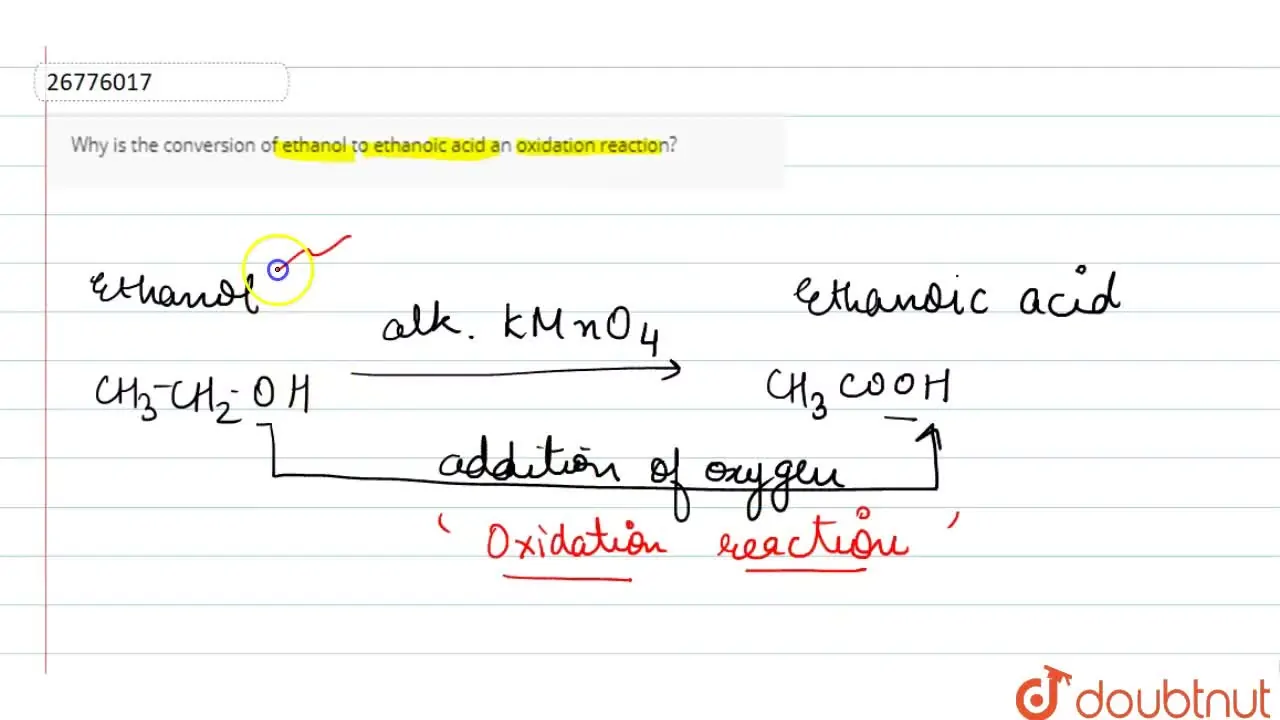 26776017
Why is the conversion of ethanol to ethanoic acid an oxidation reaction?
Ethanol
alk. KMnO4
Ethanoic acid
CH3-CH2-OH
CH3COOH
addition of oxygen
' Oxidation reaction '
doubtnut